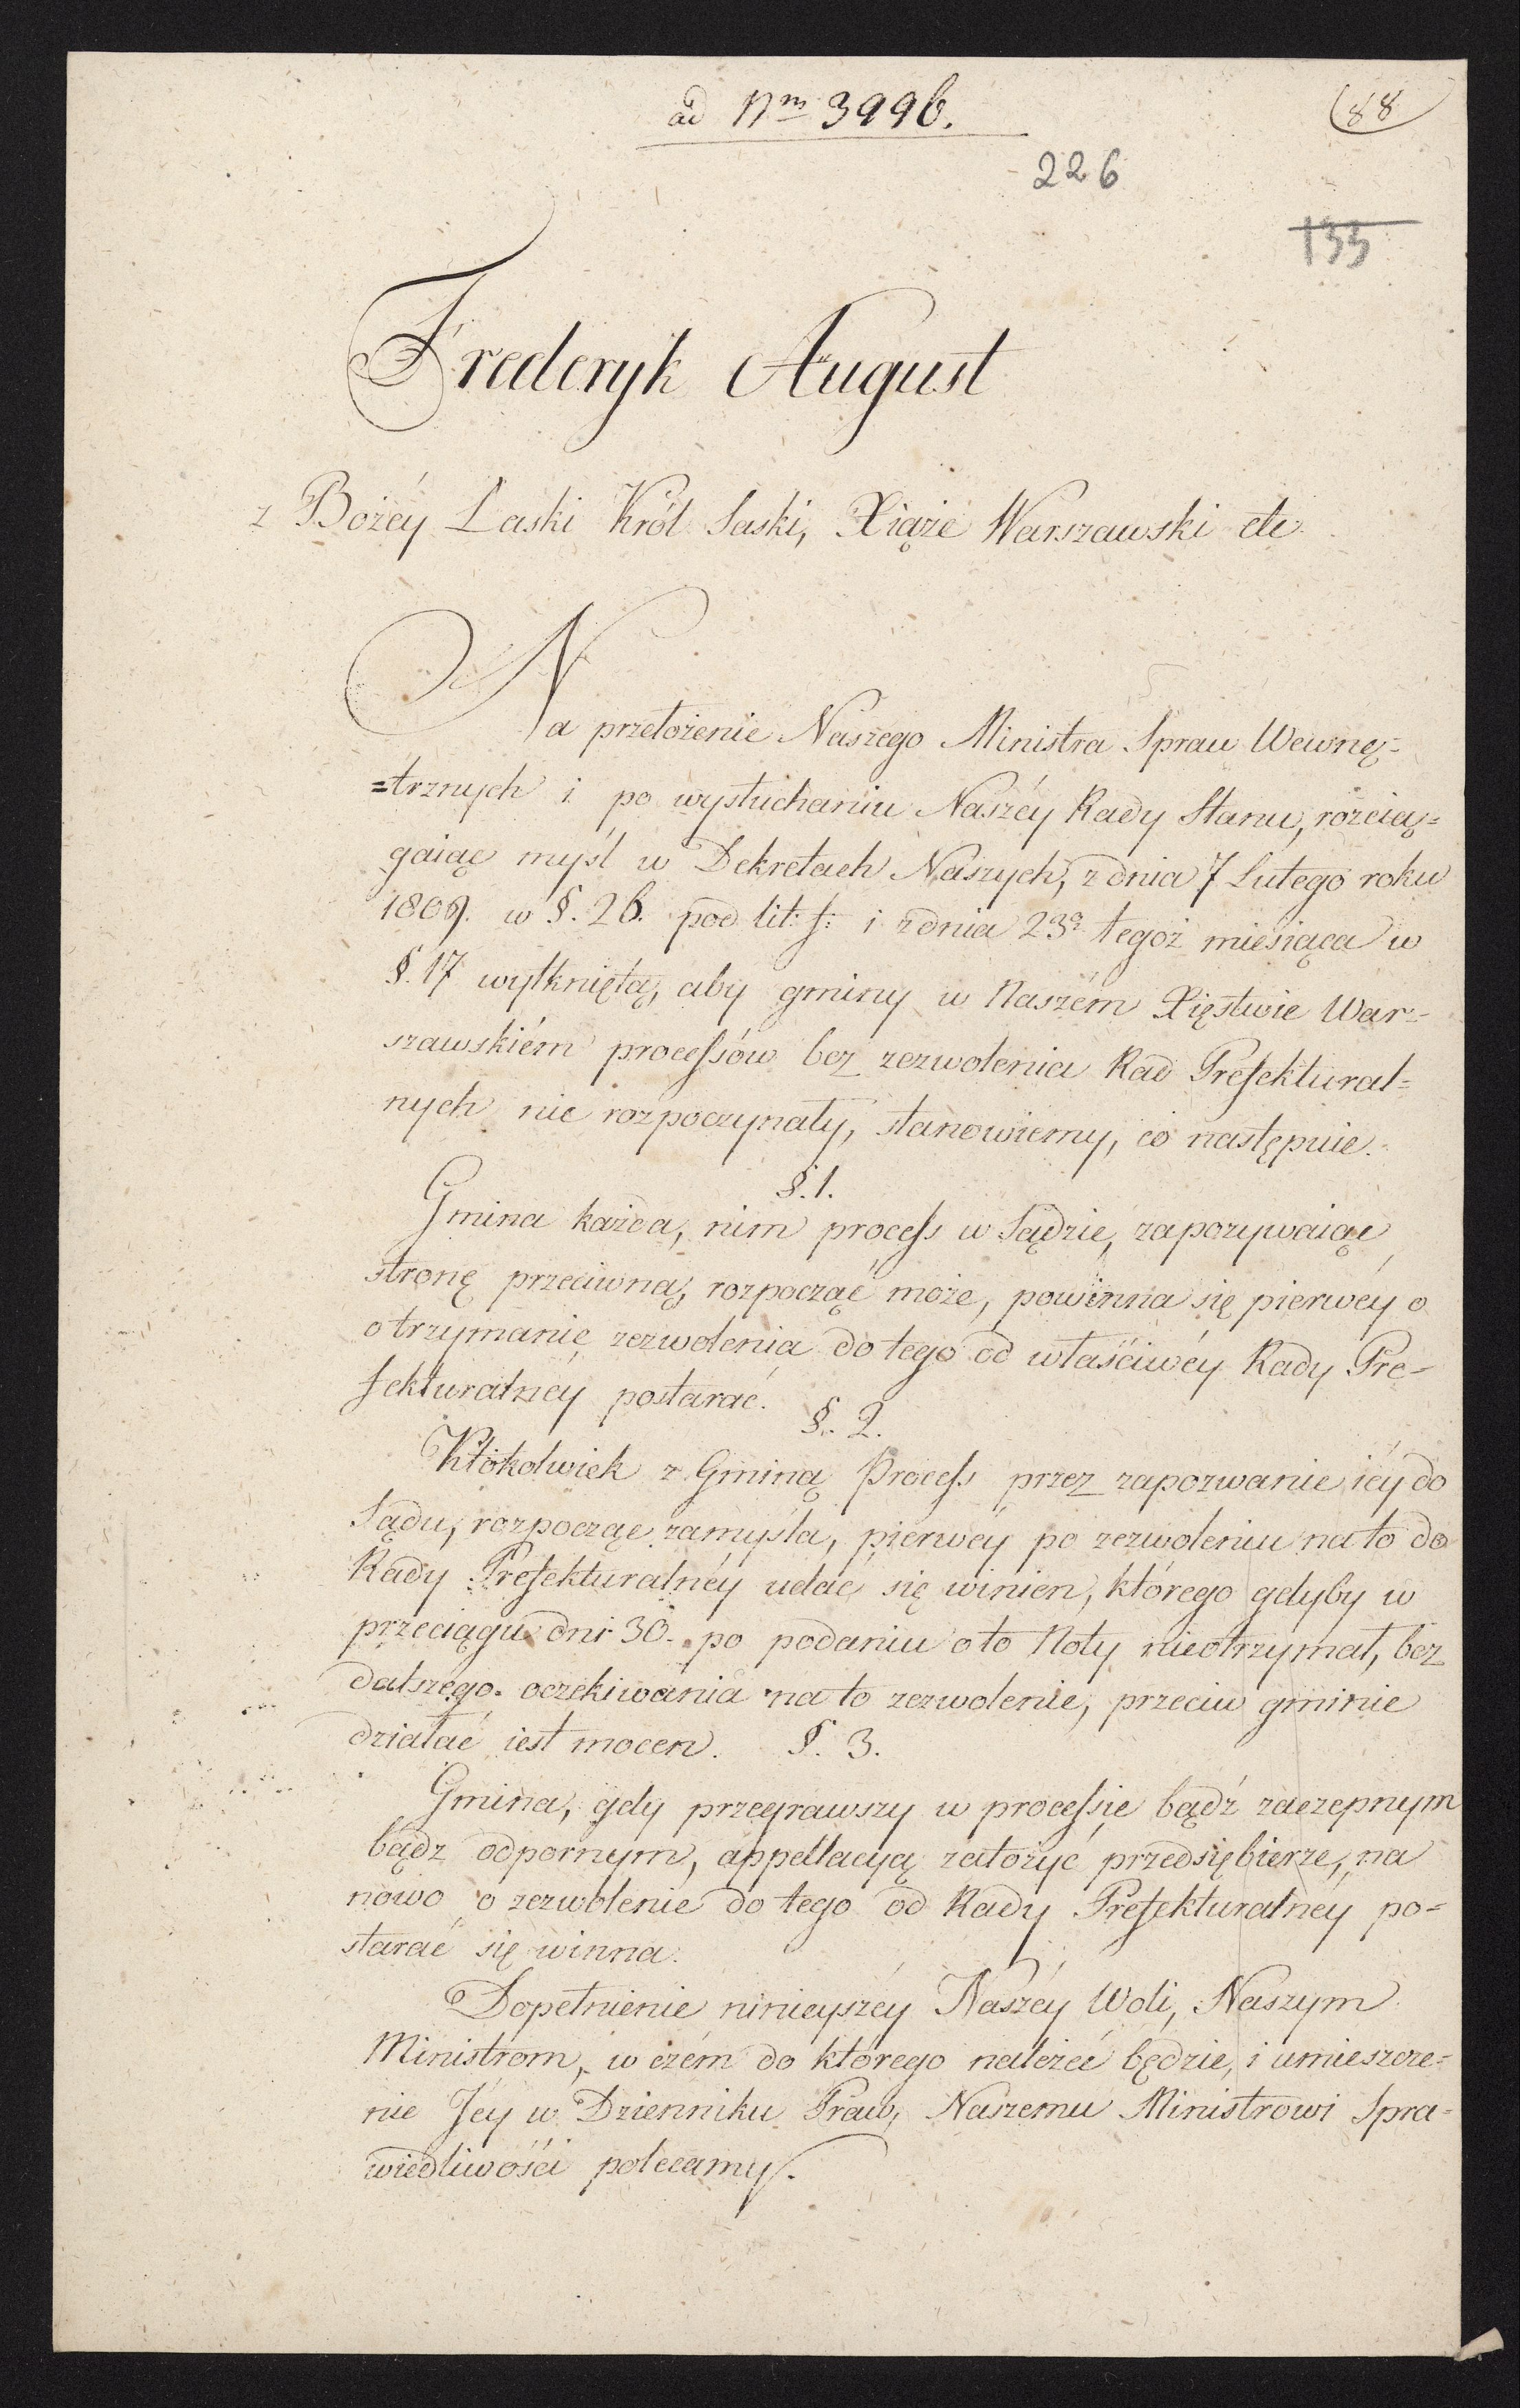 ad Nm 3996.
88
226
133
Frederyk August
z Bożéy Łaski Król Saski, Xiąże Warszawski etc.
Na przełożenie Naszego Ministra Spraw Wewnę-
=trznych i po wysłuchaniu Naszéy Rady Stanu, rozcią=
gaiąc myśl w Dekretach Naszych, z dnia 7 Lutego roku
1809. w §. 26. pod lit: f: i z dnia 23º tegoż miesiąca w
§. 17 wytkniętą, aby gminy w Naszém Xięstwie War=
szawskiém processów bez zezwolenia Rad Prefektural=
nych nie rozpoczynały, stanowiemy, co następuie.
§. 1.
Gmina każda, nim process w Sądzie, zapozywaiąc
stronę przeciwną, rozpocząć może, powinna się pierwéy o
otrzymanie zezwolenia do tego od właściwéy Rady Pre-
fekturalnéy postarać.
§. 2.
Ktokolwiek z Gminą Process przez zapozwanie iéy do
Sądu, rozpocząć zamyśla, pierwéy po zezwoleniu na to do
Rady Prefekturalnéy udać się winien, którego gdyby w
przeciągu dni 30. po podaniu o to Noty nieotrzymał, bez
dalszego oczekiwania na to zezwolenie, przeciw gminie
działać iest mocen. §. 3.
Gmina, gdy przegrawszy w processie bądź zaczepnym
bądz odpornym, appellacyą założyć przedsiębierze, na
nowo o zezwolenie do tego od Rady Prefekturalnéy po=
starać się winna.
Dopełnienie ninieyszéy Naszéy Woli, Naszym
Ministrom, w czém do którego należeć będzie, i umieszcze=
nie Jéy w Dzienniku Praw, Naszemu Ministrowi Spra=
wiedliwości polecamy.